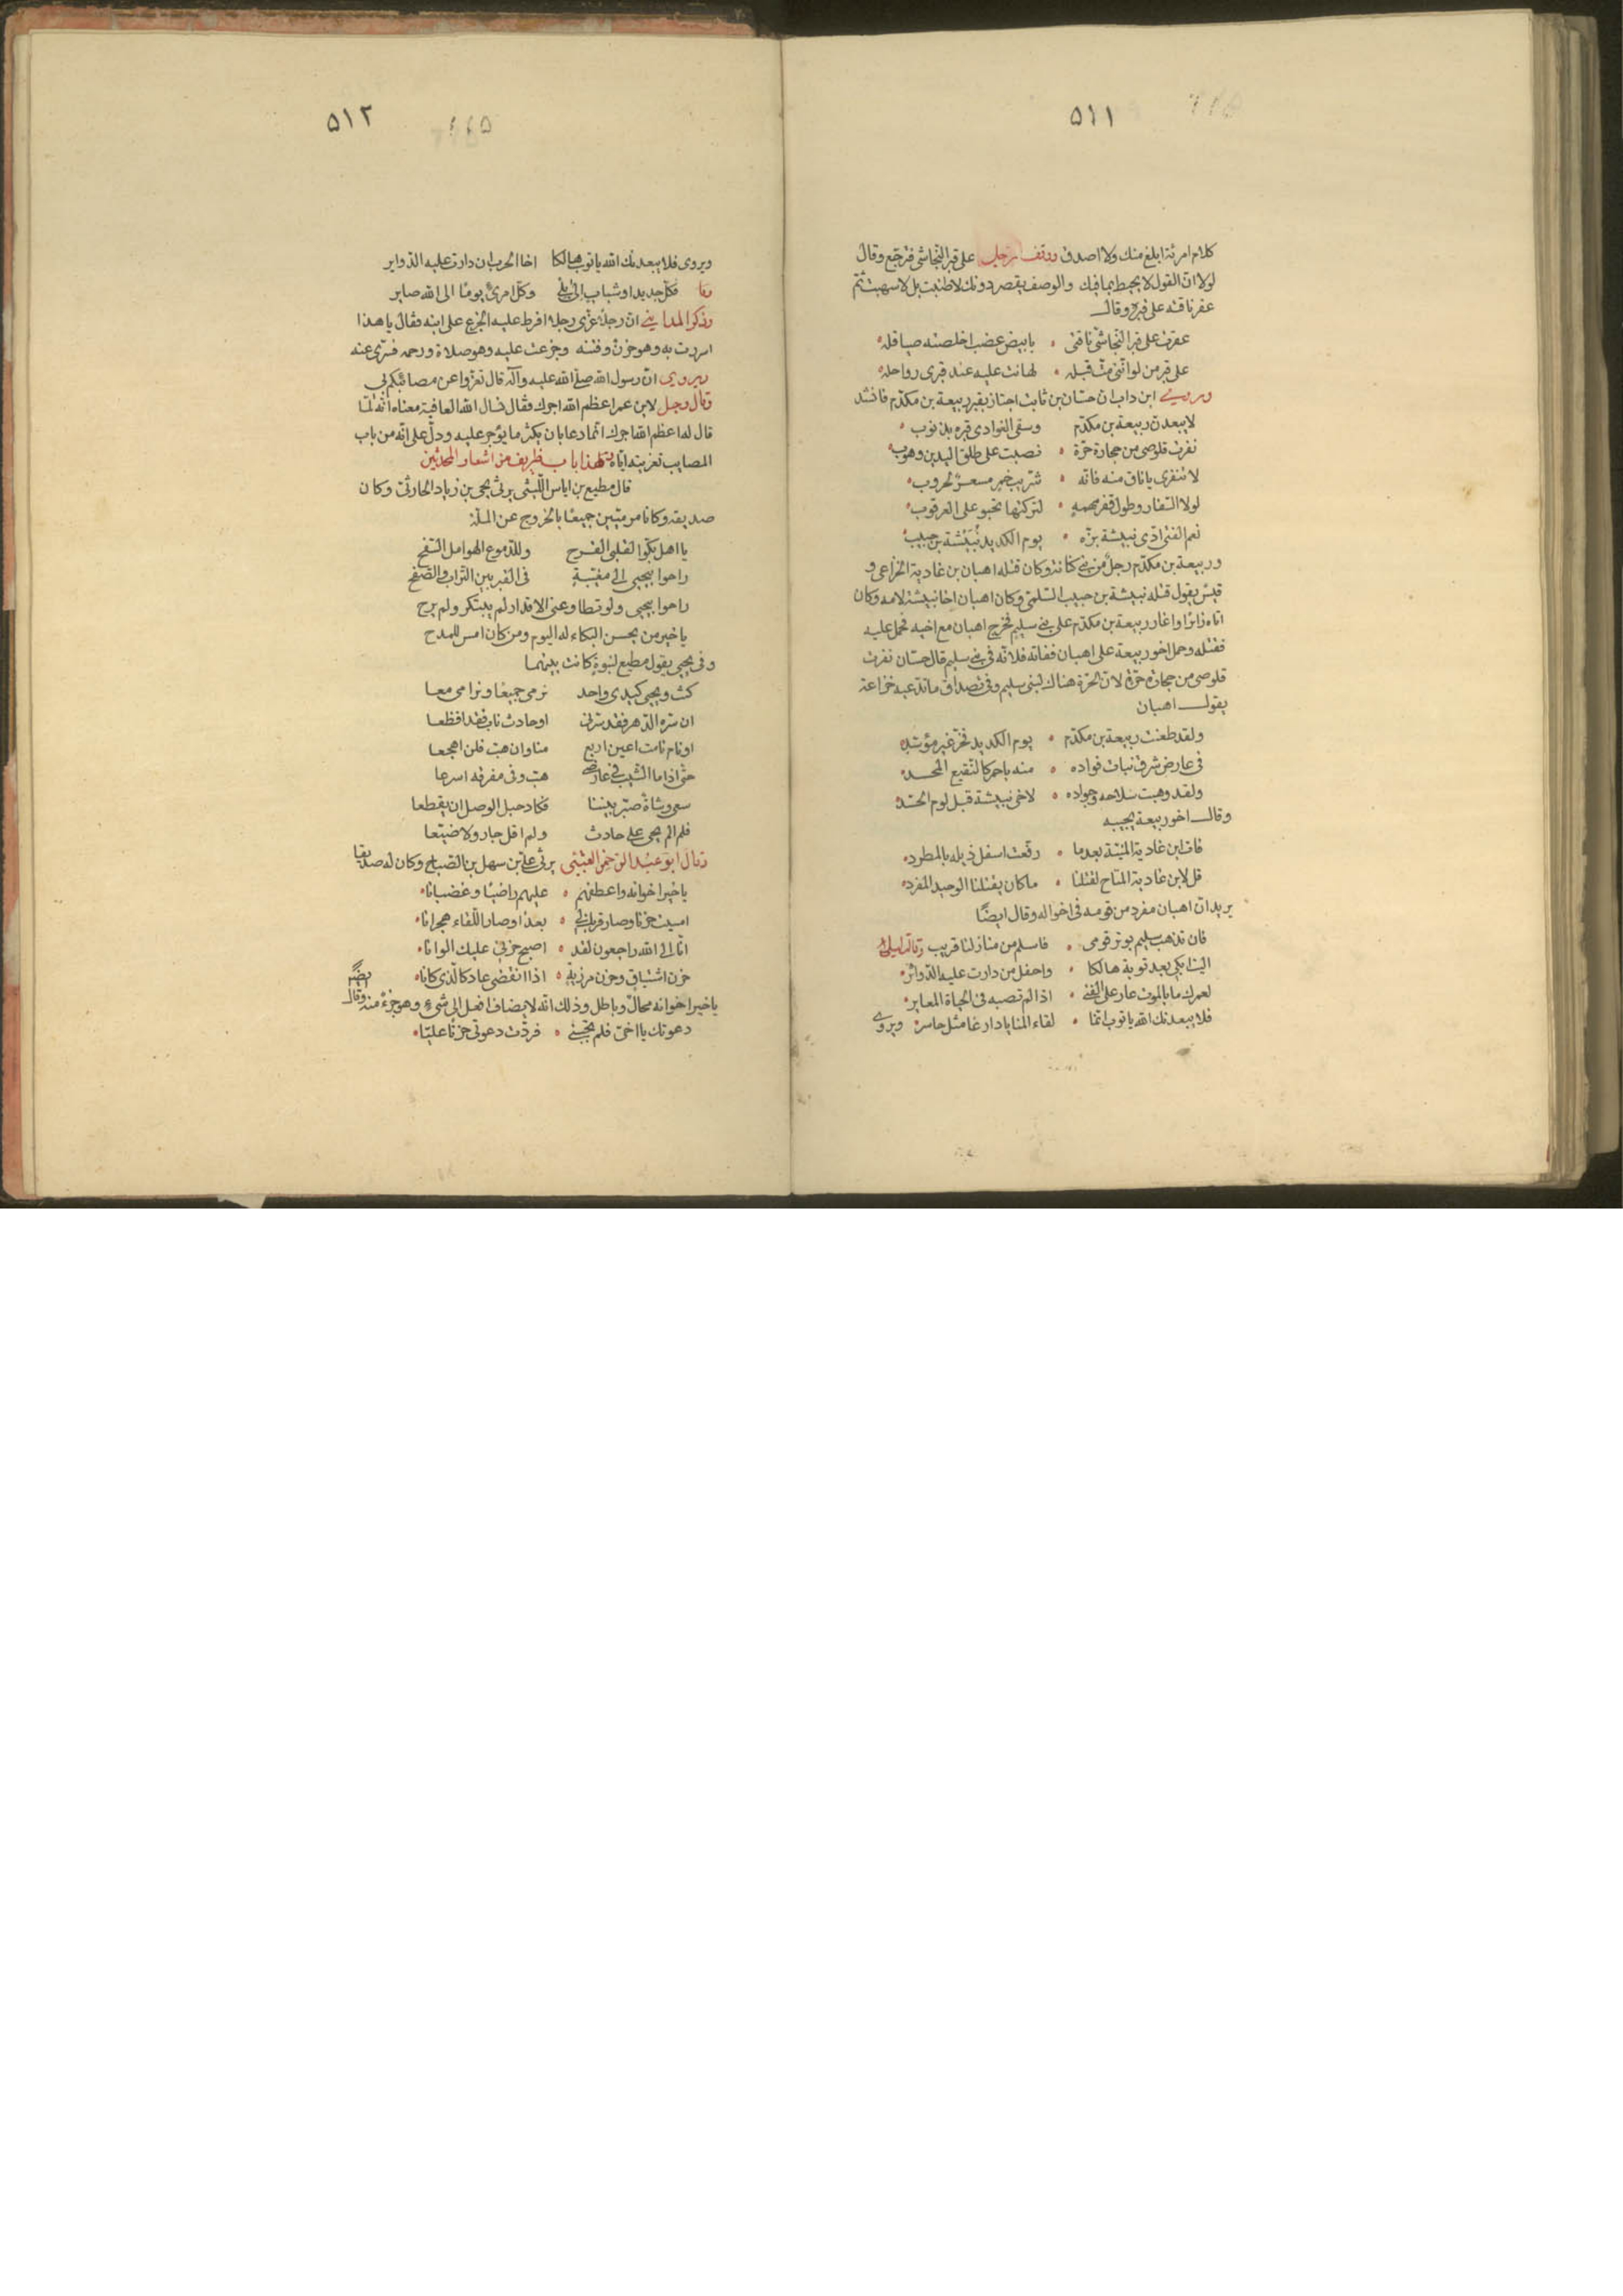 ٥١١
كلام امرئة ابلغ منك ولا اصدق ووقف رجل على قبر النجاشى فترجع وقال
لولا ان القول لا يحيط بما فيك والوصف يقصر دونك لاطنبت بل لاسهبت ثم
عقر ناقته على قبره وقال
عقرت على قبر النجاشى ناقتى • بابيض عضب اخلصته صياقله
على قبر من لو اننى مت قبله • لهانت عليه عند قبرى رواحله
وروى ابن داب ان حسان بن ثابت اجتاز بقبر ربيعة بن مكدّم فانشد
لا يبعدن ربيعة بن مكدّم وسقى الغوادى قبره بذنوب •
نفرت قلوصى من حجارة حرّة • نصبت على طلق اليدين وهوب
لا تنفرى ياناق منه فانه • شريب خمر مسعر لحروب
لولا السفار وطول قفر مهمه • لتركتها تحبو على العرقوب
نعم الفتى ادى نبيشة بزّه • يوم الكديد نبيشة بن حبيب
وربيعة بن مكدّم رجل من بنى كنانة وكان قتله اهبان بن غادية الخزاعى و
قيس يقول قتله نبيشة بن حبيب السلمى وكان اهبان اخا نبيشة لامه وكان
اتاه زائرا واغار ربيعة بن مكدّم على بنى سليم فخرج اهبان مع اخيه فحمل عليه
فقتله وحمل اخو ربيعة على اهبان ففاته فلانه فى بنى سليم قال حسان نفرت
قلوصى من حجارة حرّة لان الحرّة هناك لبنى سليم وفى تصداق ما تدعيه خزاعة
يقول اهبان
ولقد طعنت ربيعة بن مكدّم • يوم الكديد فخرّ غير موسّد
فى عارض شرق نبات فواده • منه باحمر كالنقيع المجسد
ولقد وهبت سلاحه وجواده • لاخى نبيشة قبل لوم الحسّد
وقال اخو ربيعة يجيبه
فات ابن غادية المنيّة بعدما • رفعت اسفل ذيله بالمطرد
قل لابن غادية المتاح لقتلنا • ما كان يقتلنا الوحيد المفرد
يريد ان اهبان مفرد من قومه فى اخواله وقال ايضًا
فان تذهب سليم بوتر قومى • فاسلم من منازلنا قريب وقالت ليلى
اليت ابكى بعد توبة هالكا • واحفل من دارت عليه الدوائر
لعمرك ما بالموت عار على الفتى • اذا لم تصبه فى الحياة المعاير
فلا يبعدنك الله يا توب انما • لقاء المنايا دارعا مثل حاسر ويروى
٥١٢
ويروى فلا يبعدنك الله يا توب هالكا اخا الحرب ان دارت عليه الدواير
فكل جديد او شباب الى بلى وكل امرئ يوما الى الله صابر
وذكر المداينى ان رجلا عزى رجلا افرط عليه الجزع على ابنه فقال يا هذا
اسررت به وهو حزن وفتنه وجزعت عليه وهو صلاة ورحمه فسرّى عنه
ويروى ان رسول الله صلى الله عليه وآله قال تعزوا عن مصائبكم بى
وقال رجل لابن عمر اعظم الله اجرك فقال نسال الله العافية معناه انه لما
قال له اعظم الله اجرك انما دعا بان يكثر ما يؤجر عليه ودلّ على انه من باب
المصايب تعزيته اياه هذا باب ظريف من اشعار المحدثين
قال مطيع بن اياس الليثى يرثى يحيى بن زياد الحارثى وكان
صديقه وكانا مرميّين جميعا بالخروج عن الملّة
يا اهل بكوا لقلبى القرح وللدموع الهوامل السفح
راحوا بيحيى الى مغيّبة فى القبر بين التراب والصفح
راحوا بيحيى ولو تطاوعنى الاقدار لم يبتكر ولم يرح
يا خير من يحسن البكاء له اليوم ومن كان امس للمدح
وفى يحيى يقول مطيع لنبوة كانت بينهما
كنت ويحيى كيدى واحد نرمى جميعا ونرامى معا
ان سره الدهر فقد سرنى او حادث ناب فقد افظعا
او نام نامت اعين اربع منا وان هب فلن اهجعا
حتى اذا ما الشيب فى عارضى هب وفى مفرقه اسرعا
سعى وشاة صبّر بيننا فكاد حبل الوصل ان يقطعا
فلم الم يحيى على حادث ولم اقل جار ولا ضيّعا
وقال ابو عبد الرحمن العتبى يرثى على بن سهل بن الصباح وكان له صديقا
يا خير اخوانه واعطفهم • عليهم راضيا وغضبانا
امسيت حزنا وصار قربك لى • بعدا وصار اللقاء هجرانا
انا الى الله راجعون لقد • اصبح حزنى عليك الوانا
حزن اشتياق وحزن مرزية • اذا انقضى عاد كالذى كانا
يا خير اخوانه محال وباطل وذلك انه لا يضاف افعل الى شىء وهو جزء منه وقال ايضًا
دعوتك يا اخى فلم تجبنى • فردّت دعوتى حزنا عليّا